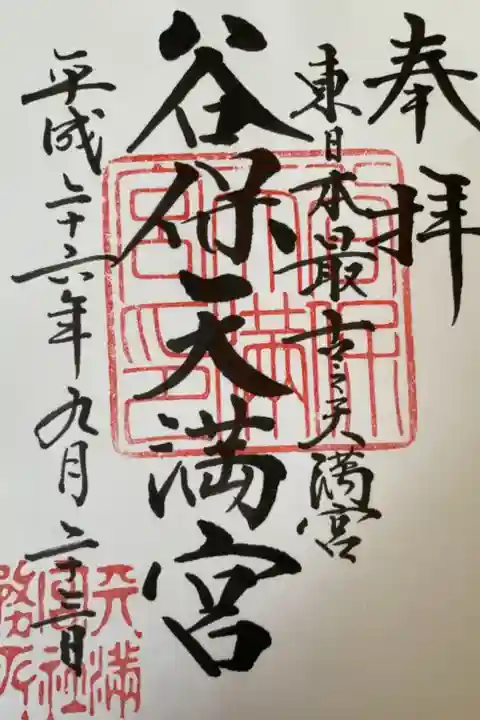 奉拝
東日本最古之天満宮
谷保天満宮
平成二十六年九月二十三日
谷保天満宮印